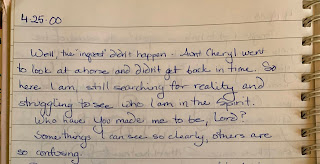 4.25.00
Well, the "ingress" didn't happen - Aunt Cheryl went
to look at a horse and didn't get back in time. So
here I am, still searching for reality and
struggling to see who I am in the Spirit.
Who have You made me to be, Lord?
Some things I can see so clearly, others are
so confusing.